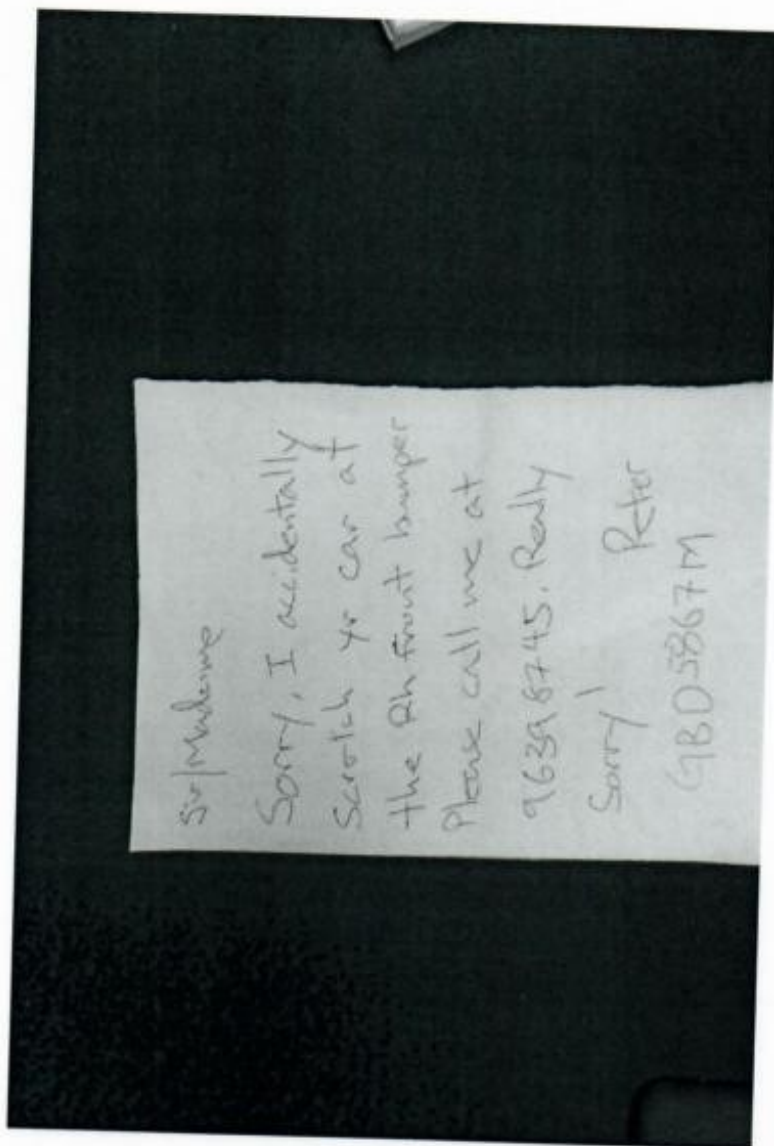 Sir/Madame
Sorry, I accidentally
Scratch yr car at
the Rh front bumper
Please call me at
9639 6745. Really
Sorry!
Peter
GBD5867M